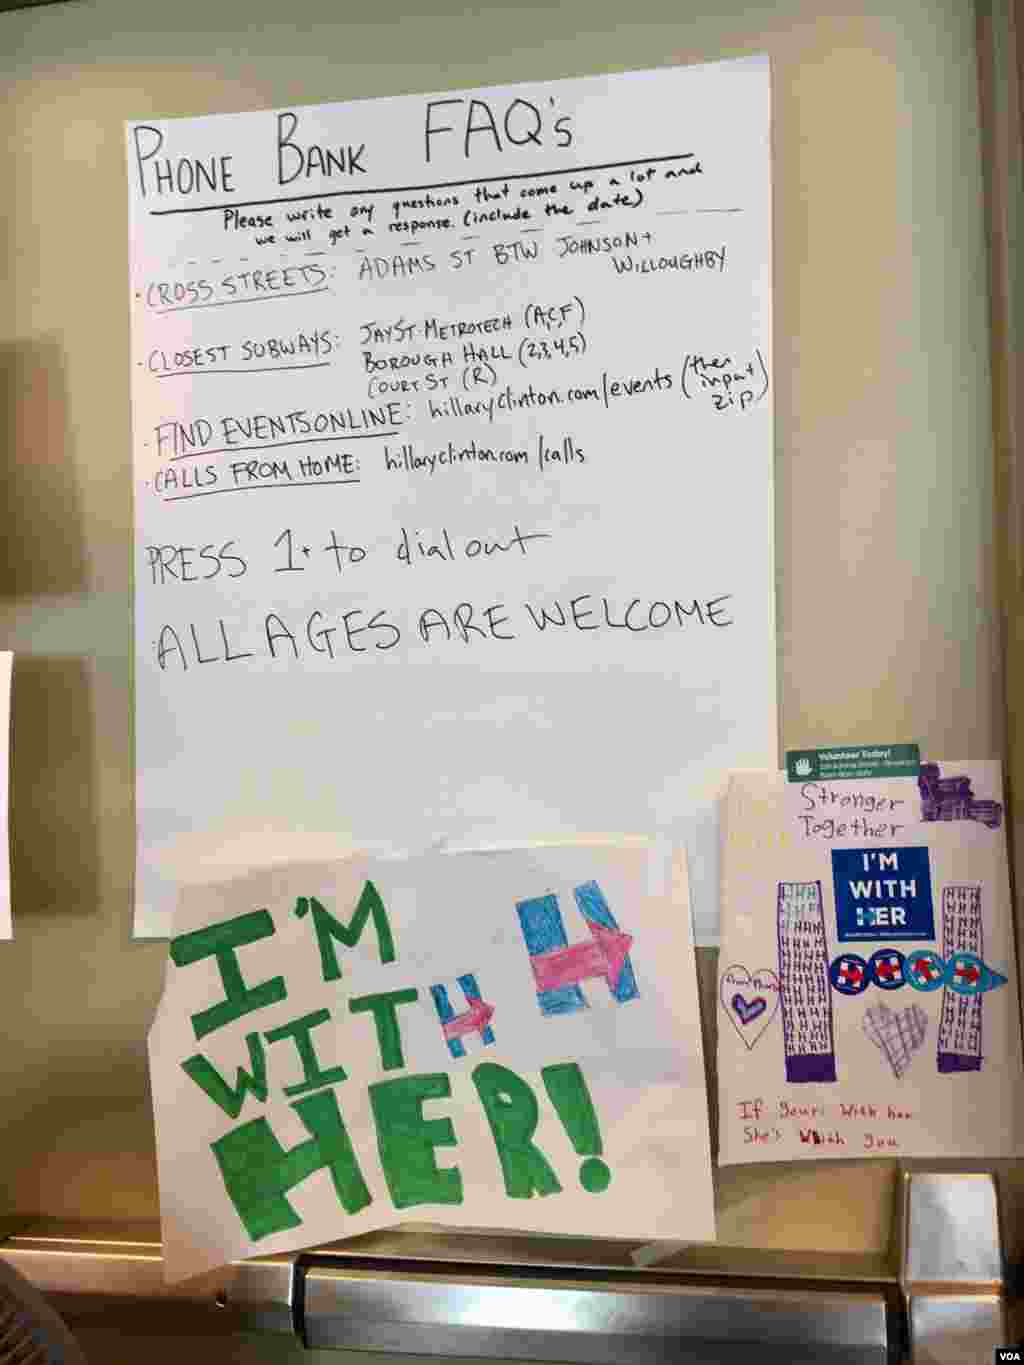 PHONE BANK FAQ's
Please write any questions that come up a lot and
we will get a response. (include the date)
· CROSS STREETS: ADAMS ST BTW JOHNSON +
WILLOUGHBY
· CLOSEST SUBWAYS: JAY ST METROTECH (A,C,F)
BOROUGH HALL (2,3,4,5)
COURT ST (R)
· FIND EVENTS ONLINE: hillaryclinton.com/events (then
input
zip)
· CALLS FROM HOME: hillaryclinton.com/calls
PRESS 1+ to dial out
ALL AGES ARE WELCOME
I'M
WITH H H
HER!
Volunteer Today!
Stronger
Together
I'M
WITH
HER
If your with her
She's With you
VOA